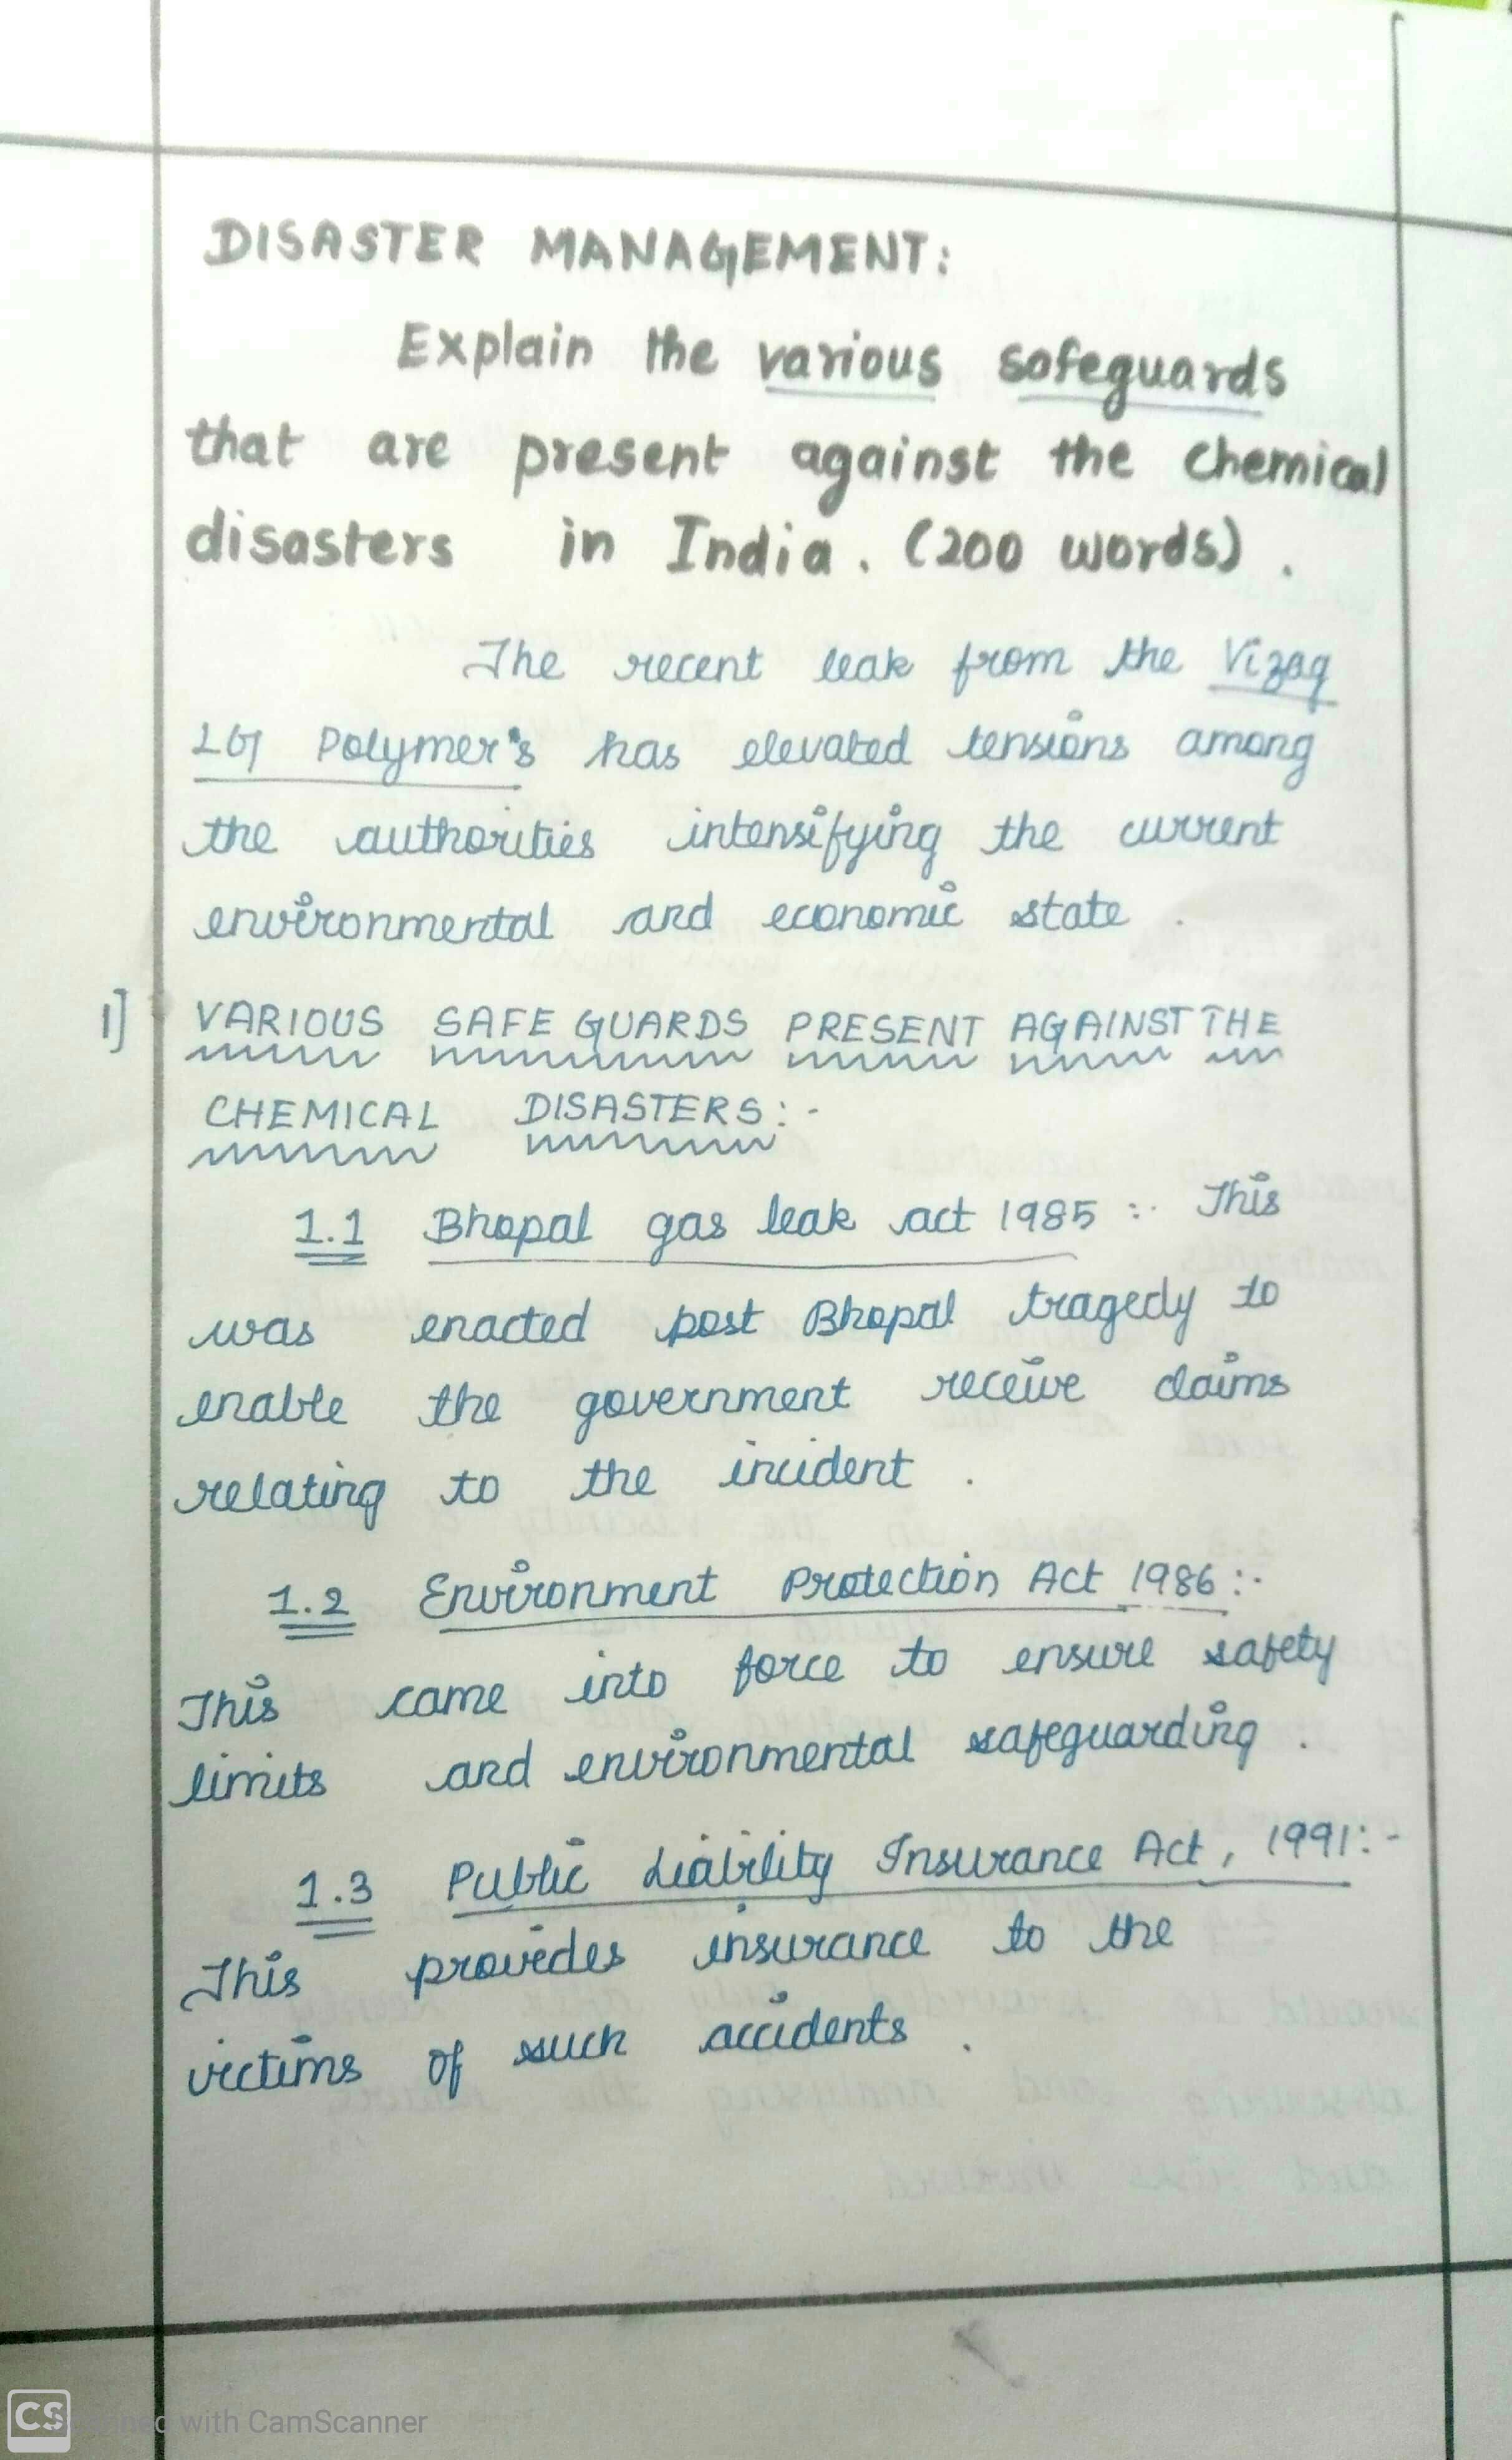 DISASTER MANAGEMENT:
Explain the various safeguards
that are present against the chemical
disasters in India. (200 words).
The recent leak from the Vizag
LG Polymer's has elevated tensions among
the authorities intensifying the current
environmental and economic state.
1] VARIOUS SAFE GUARDS PRESENT AGAINST THE
CHEMICAL DISASTERS:-
1.1 Bhopal gas leak act 1985:- This
was enacted post Bhopal tragedy to
enable the government receive claims
relating to the incident.
1.2 Environment Protection Act 1986:-
This came into force to ensure safety
limits and environmental safeguarding.
1.3 Public Liability Insurance Act, 1991:-
This provides insurance to the
victims of such accidents.
CS
with CamScanner